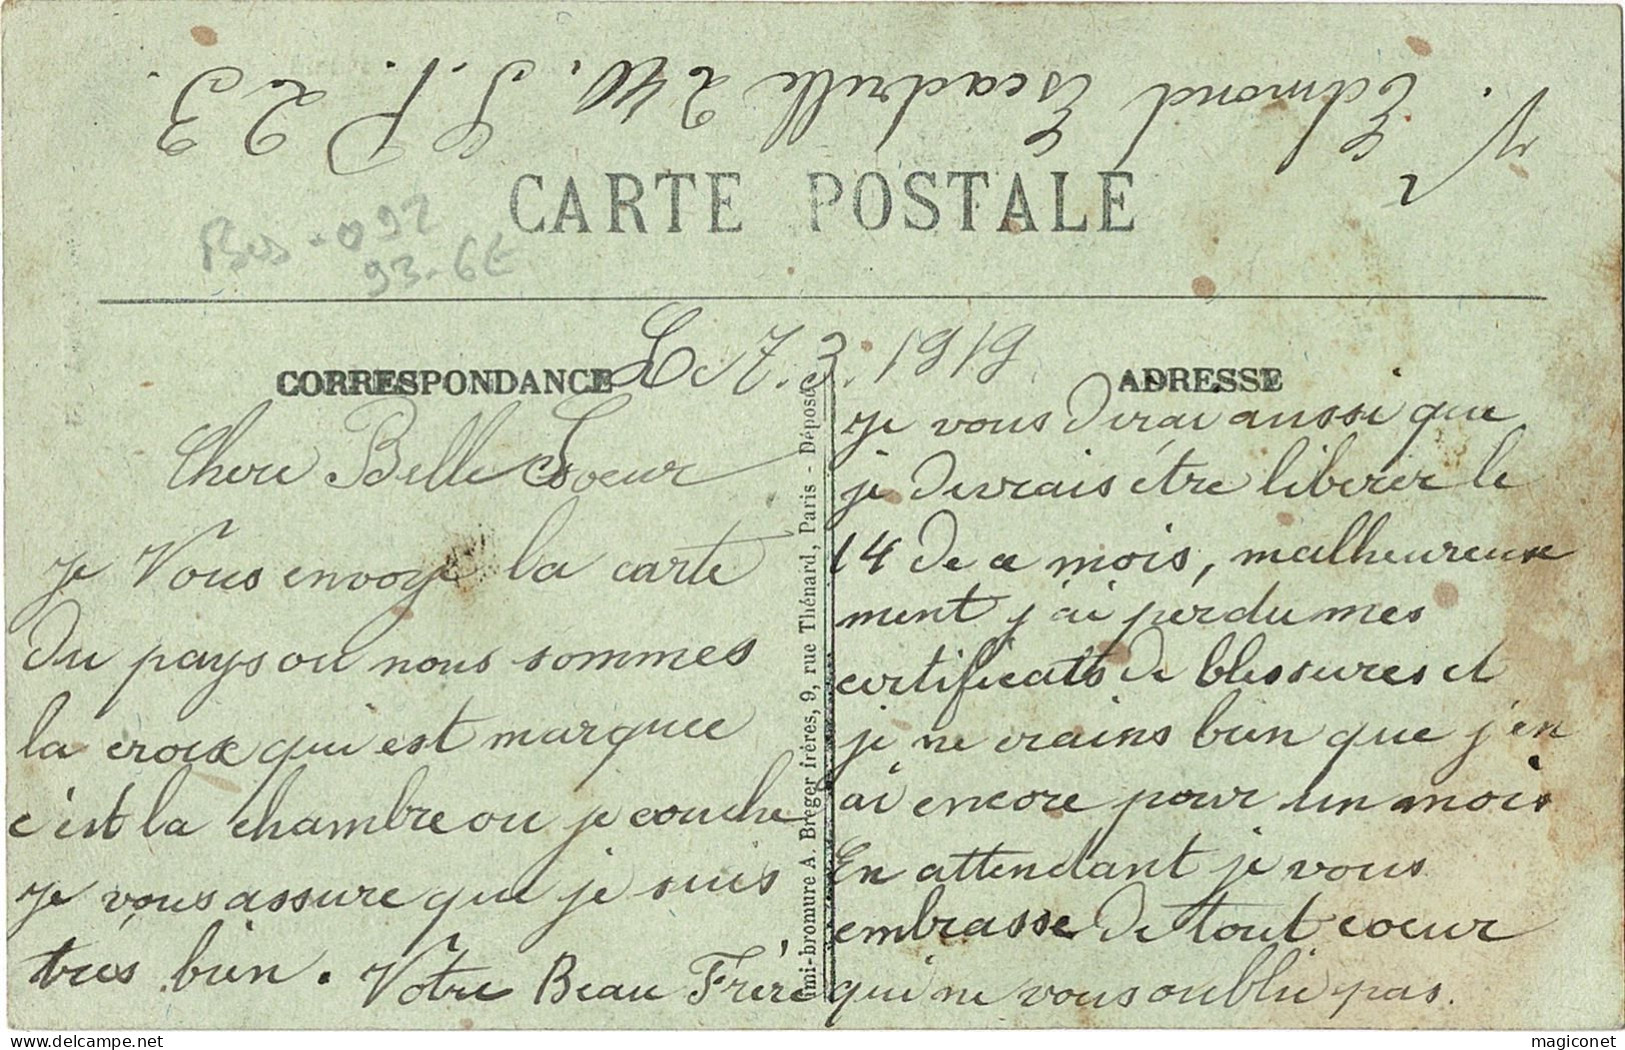 V. Edmond Escadrille 240. S. P. 23.
CARTE POSTALE
92
93-6E
CORRESPONDANCE
Le 7.3.1919
ADRESSE
Chere Belle Soeur
je Vous envoye la carte
du pays ou nous sommes
la croix qui est marquee
c'est la chambre ou je couche
je vous assure que je suis
tres bien. Votre Beau Frère
imi-bromure A. Breger frères, 9, rue Thénard, Paris - Déposé
je vous dirai aussi que
je devrais être liberer le
14 de ce mois, malheureuse
ment j'ai perdu mes
certificats de blessures et
je ne crains bien que j'en
ai encore pour un mois
En attendant je vous
embrasse de tout coeur
qui ne vous oublie pas.
magiconet